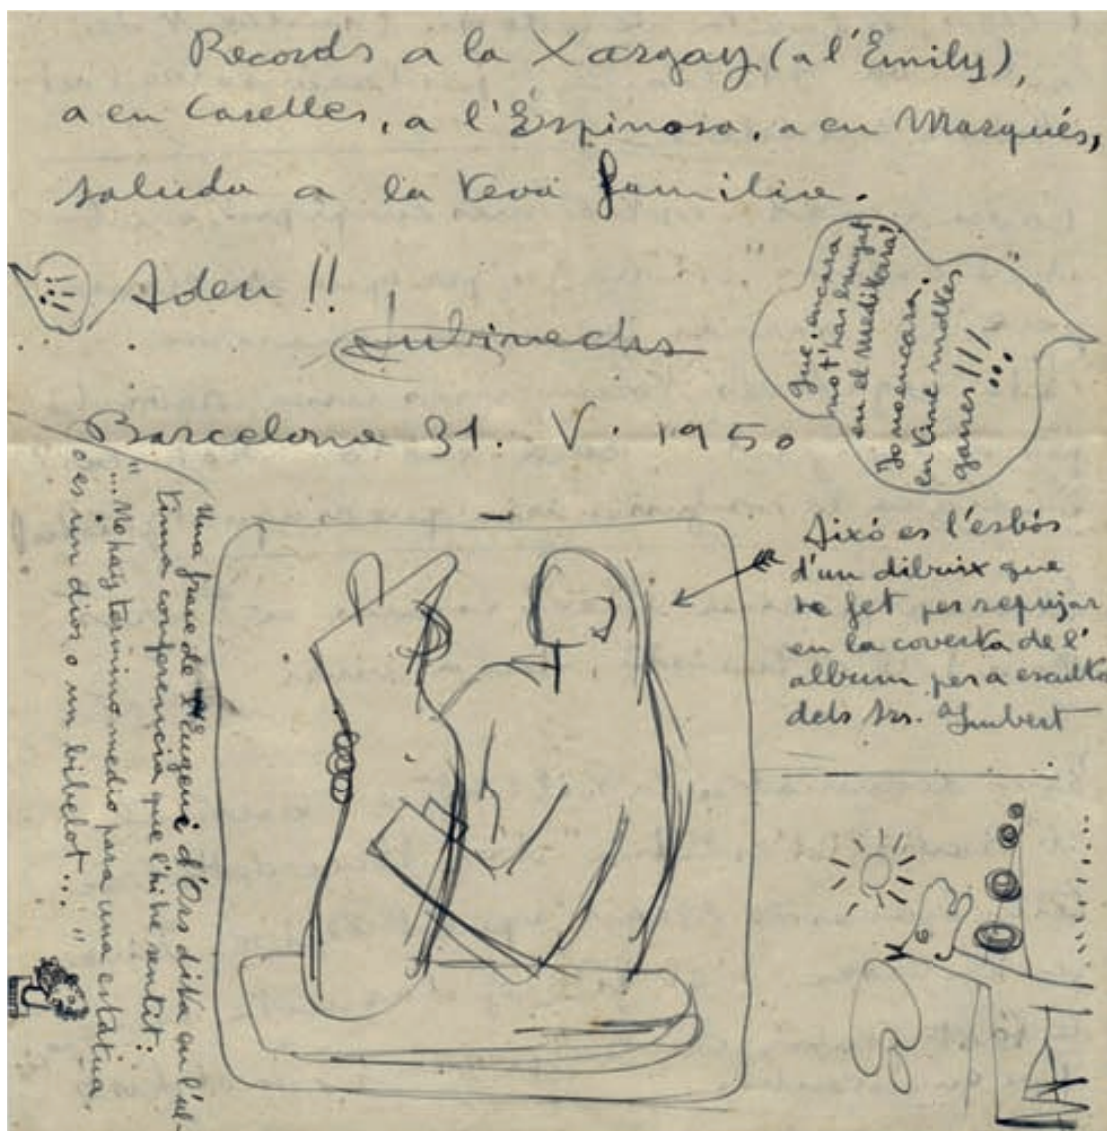 Records a la Xargay (a l'Emily),
a en Caselles, a l'Espinosa, a en Marqués,
saluda a la teva familia.
!!!
Adeu !!
Subirachs
Barcelona 31. V. 1950
Que, encara
no t'has banyat
en el Mediterrà?
Jo no encara,
en tinc moltes
ganes!!!
Això es l'esbós
d'un dibuix que
he fet per repujar
en la coverta de l'
album per a escultor
dels Srs. Gimbert
Una frase de l'Eugeni d'Ors dita en l'ul-
tima conferencia que l'hi he sentit:
"...No hay termino medio para una estatua,
o es un dios o un bibelot..."